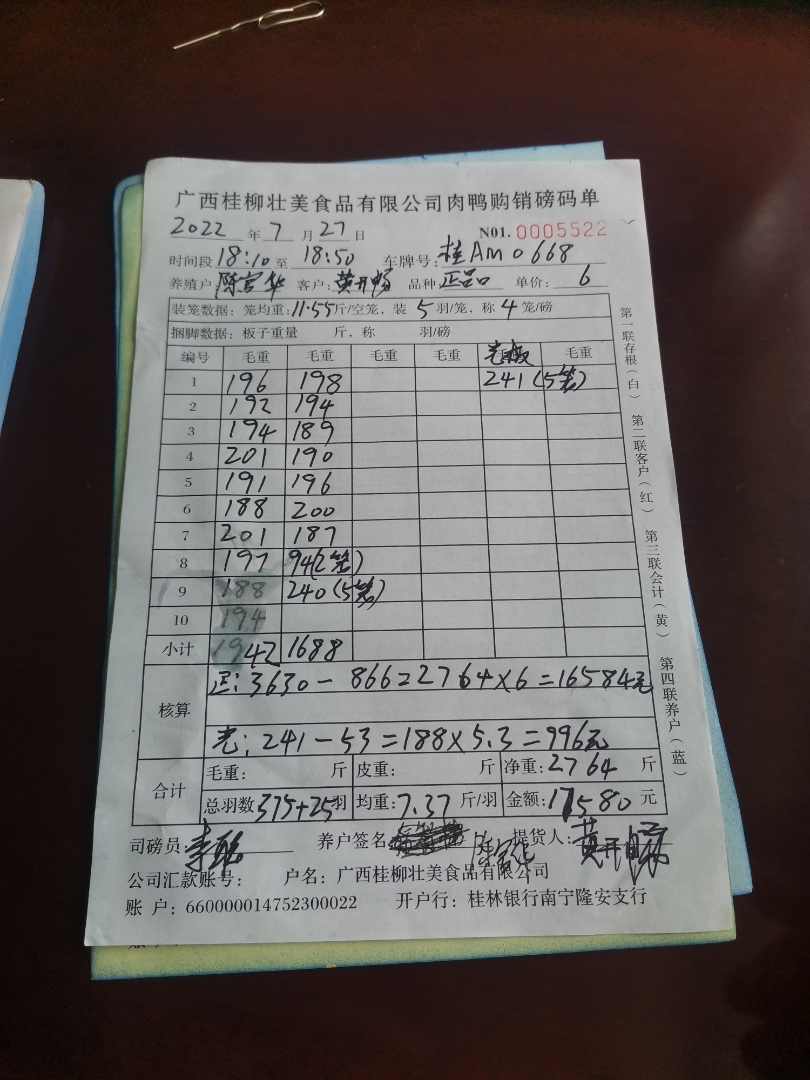 广西桂柳壮美食品有限公司肉鸭购销磅码单
2022 年 7 月 27 日 N01. 0005522
时间段 18:10 至 18:50 车牌号: 桂AM0668
养殖户 陈宫华 客户: 黄开畅 品种 正品 单价: 6
装笼数据: 笼均重: 11.55 斤/空笼, 装 5 羽/笼, 称 4 笼/磅
捆脚数据: 板子重量 斤, 称 羽/磅
编号 毛重 毛重 毛重 毛重 光板 毛重
1 196 198 241 (5笼)
2 192 194
3 194 189
4 201 190
5 191 196
6 188 200
7 201 187
8 197 94(2笼)
9 188 240(5笼)
10 194
小计 1942 1688
核算
正: 3630 - 866 = 2764 × 6 = 16584元
光: 241 - 53 = 188 × 5.3 = 996元
合计
毛重: 斤 皮重: 斤 净重: 2764 斤
总羽数 375+25 羽 均重: 7.37 斤/羽 金额: 17580 元
司磅员: 养户签名 提货人: 黄开畅
公司汇款账号: 户名: 广西桂柳壮美食品有限公司
账 户: 660000014752300022 开户行: 桂林银行南宁隆安支行
第一联存根(白) 第二联客户(红) 第三联会计(黄) 第四联养户(蓝)